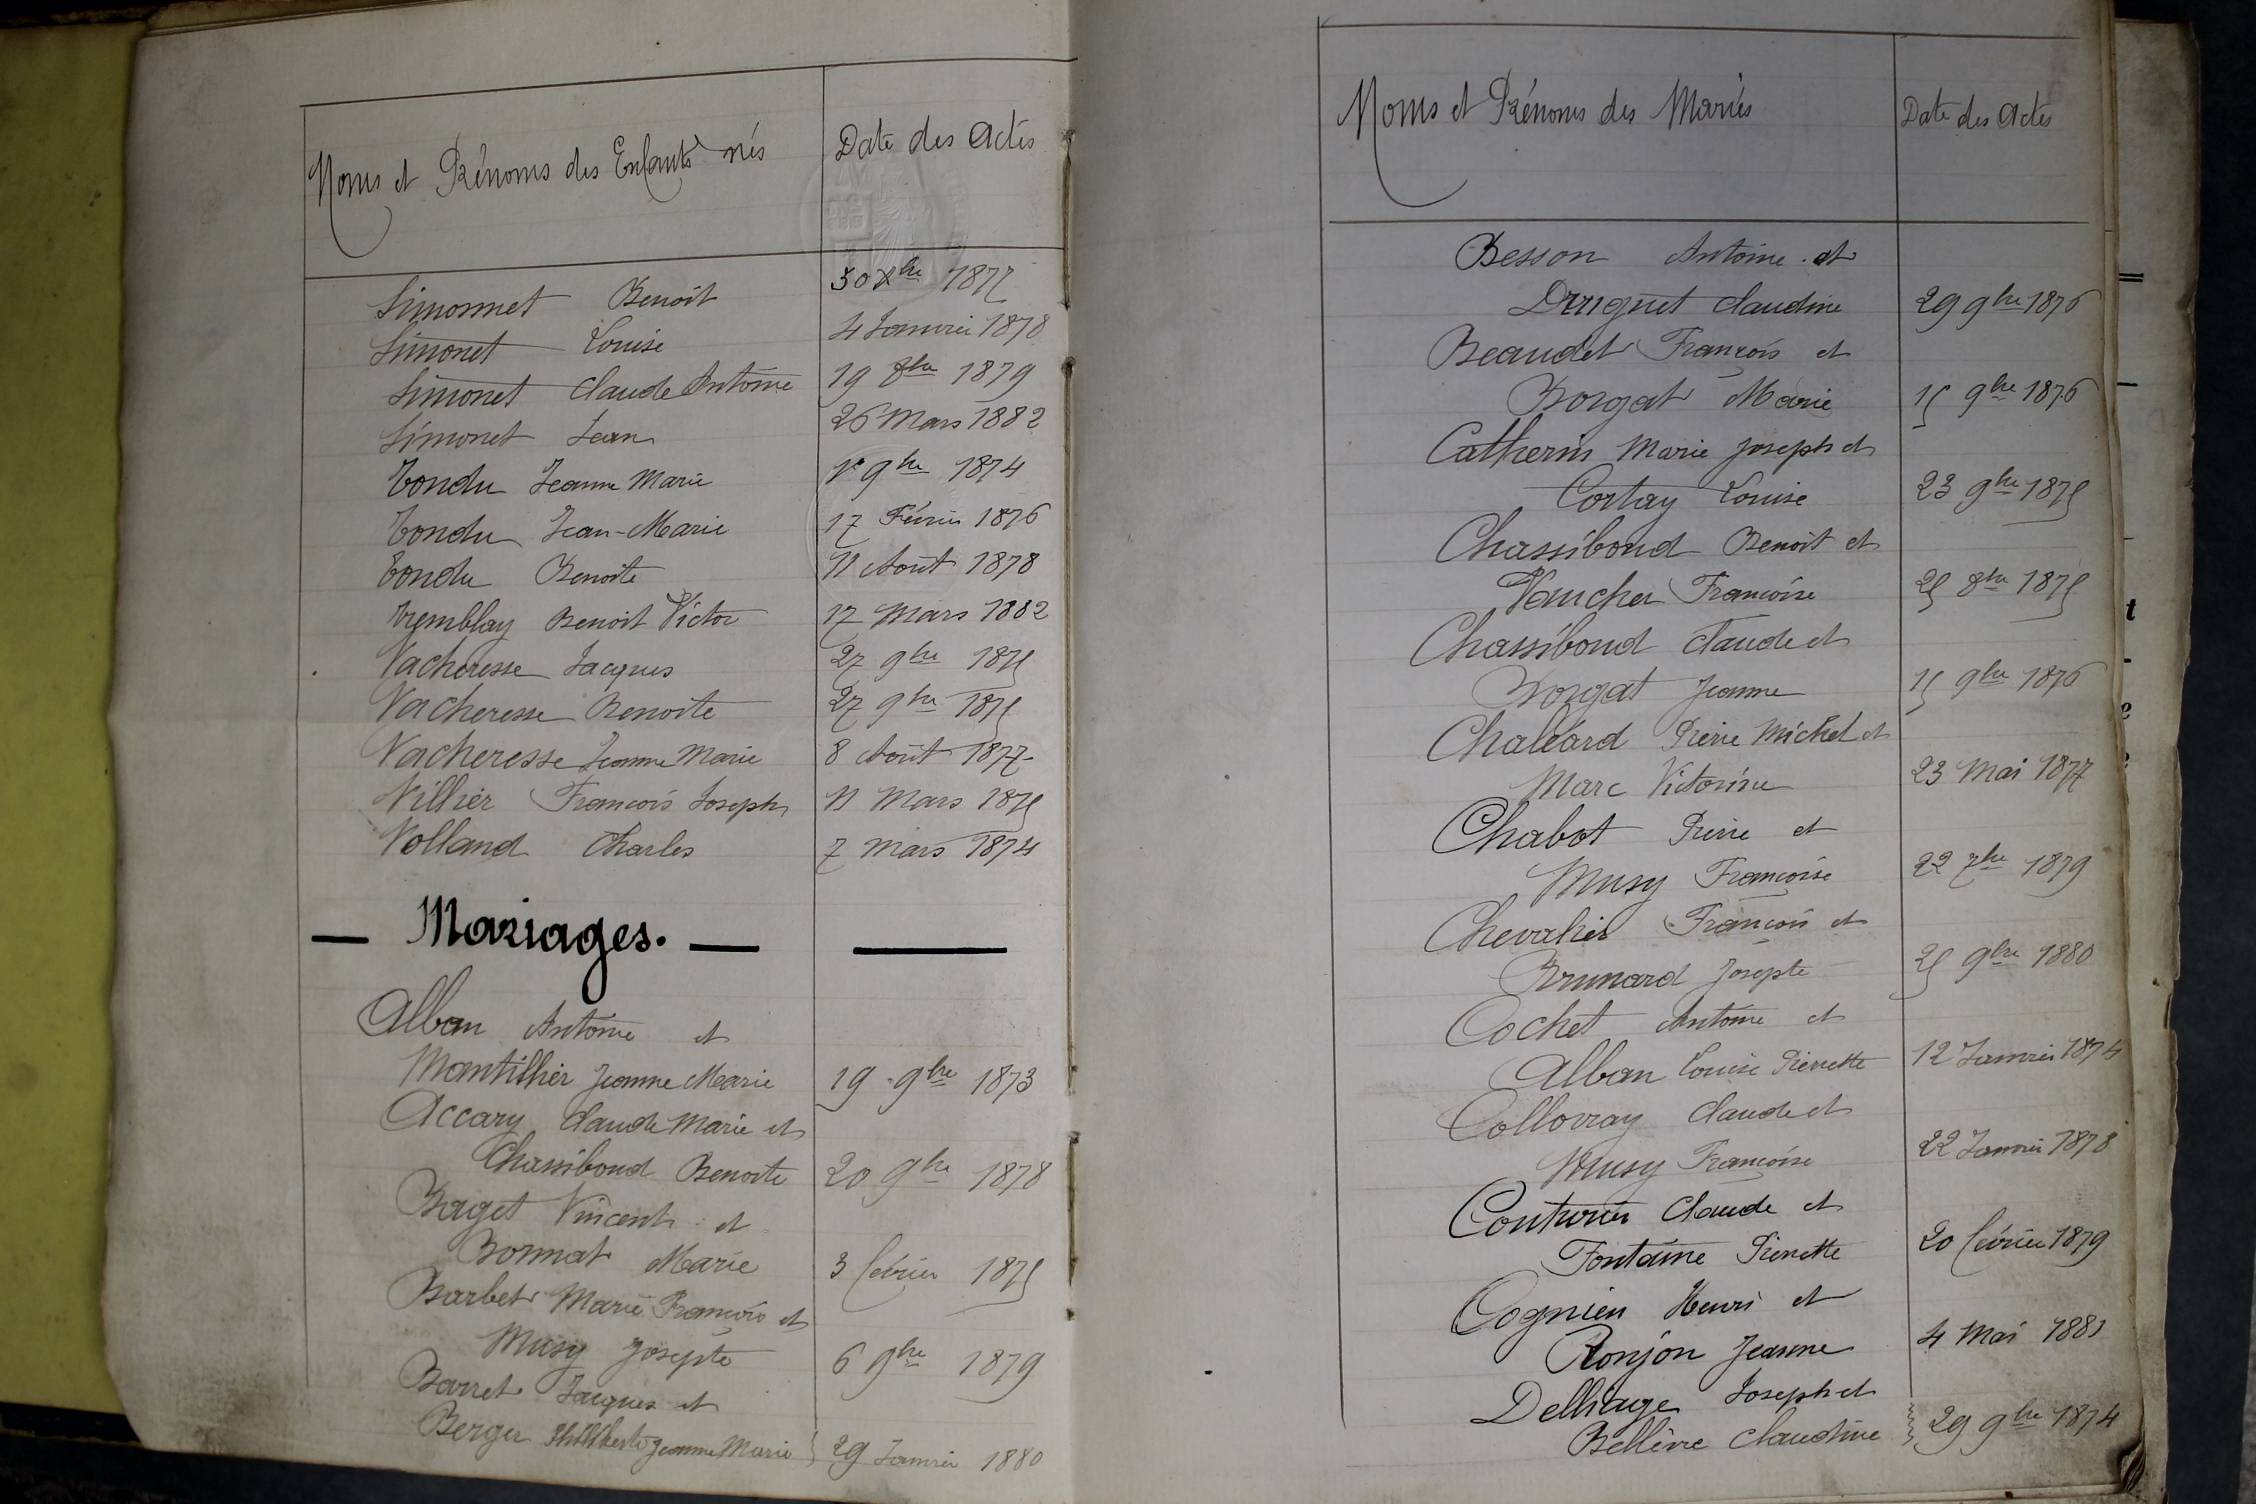 Noms et Prénoms des Enfants nés Date des Actes
Simonnet Benoît 30 Xbre 1877
Simonet Louise 4 Janvier 1878
Simonet Claude Antoine 19 8bre 1879
Simonet Jean 26 Mars 1882
Tondu Jeanne Marie 1er 9bre 1874
Tondu Jean-Marie 17 Février 1876
Tondu Benoite 11 Août 1878
Tremblay Benoit Victor 17 Mars 1882
Vacheresse Jacques 27 9bre 1875
Vacheresse Benoite 27 9bre 1875
Vacheresse Jeanne Marie 8 Août 1877
Villier François Joseph 11 Mars 1875
Volland Charles 7 Mars 1874
— Mariages. —
Alban Antoine et
Mantillier Jeanne Marie 19 9bre 1873
Accary Claude Marie et
Chassiboud Benoite 20 9bre 1878
Baget Vincent et
Bonnat Marie 3 février 1875
Barbet Marie François et
Musy Josepte 6 9bre 1879
Barret Jacques et
Berger Philiberte Jeanne Marie 29 Janvier 1880
Noms et Prénoms des Mariés Date des Actes
Besson Antoine et
Druguet Claudine 29 9bre 1876
Beaudet François et
Borgat Marie 15 9bre 1876
Catherin Marie Joseph et
Cortay Louise 23 9bre 1875
Chassiboud Benoit et
Vaucher Françoise 25 8bre 1875
Chassiboud Claude et
Borgat Jeanne 15 9bre 1876
Chaléard Pierre Michel et
Marc Victorine 23 Mai 1877
Chabot Pierre et
Musy Françoise 22 7bre 1879
Chevalier François et
Brunard Josepte 25 9bre 1880
Cochet Antoine et
Alban Louise Pierrette 12 Janvier 1874
Collovray Claude et
Musy Françoise 22 Janvier 1878
Couturier Claude et
Fontaine Pierrette 20 février 1879
Cognien Henri et
Ronjon Jeanne 4 Mai 1881
Delliage Joseph et
Bellèvre Claudine 29 9bre 1874